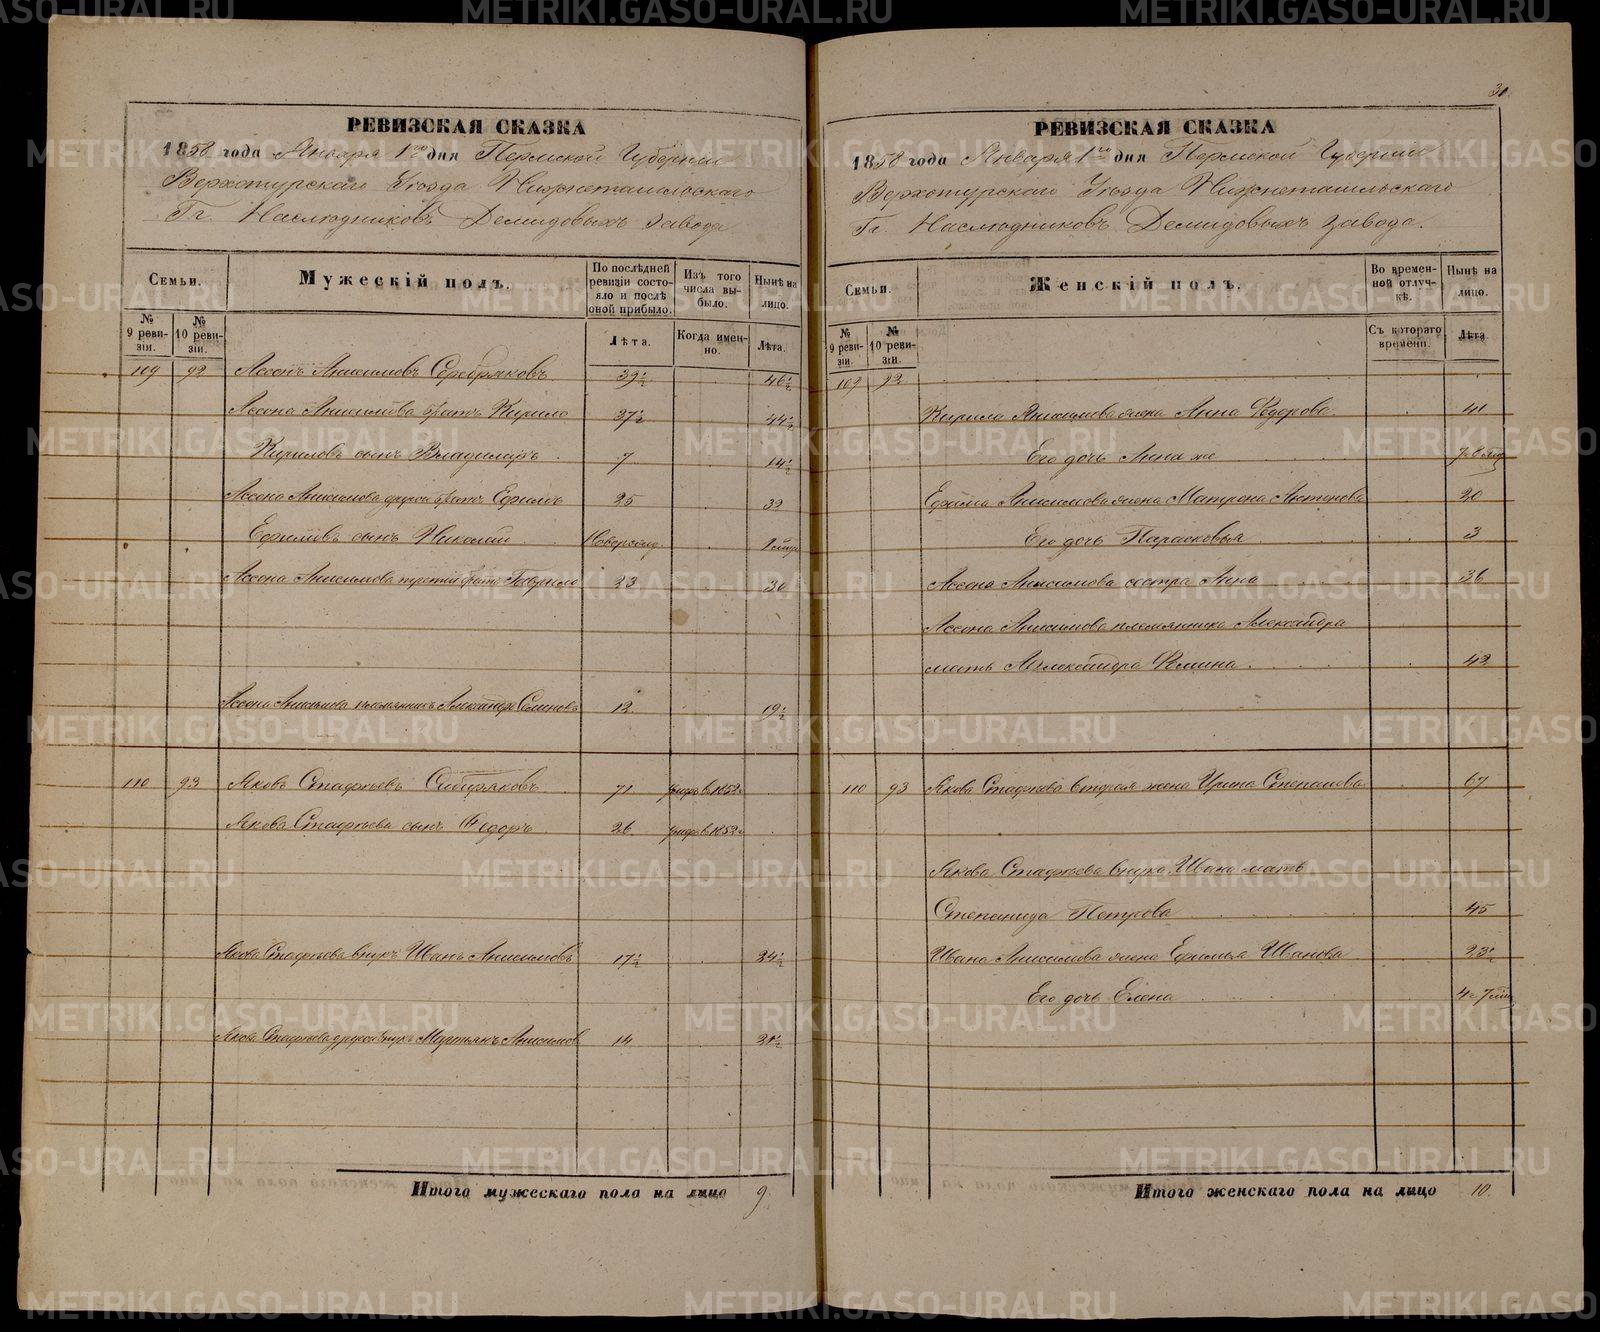 РЕВИЗСКАЯ СКАЗКА
1858 года Января 1го дня Пермской Губернии
Верхотурскаго Уезда Нижнетагильскаго
Гг. Наследниковъ Демидовыхъ завода
Семьи.
Мужескій полъ.
По послѣдней ревизіи состояло и послѣ оной прибыло.
Изъ того числа выбыло.
Нынѣ на лицо.
№ 9 ревизіи.
№ 10 ревизіи.
Лѣта.
Когда именно.
Лѣта.
109 92 Ассонъ Анисимовъ Серебряковъ 39½ 46½
Ассона Анисимова братъ Кирило 37½ 44½
Кириловъ сынъ Владимиръ 7 14½
Ассона Анисимова другой братъ Ефимъ 25 32
Ефимовъ сынъ Николай
Ассона Анисимова третій братъ Гаврило 23 30
Ассона Анисимова племянникъ Александръ Семеновъ 12 19½
110 93 Яковъ Стафеевъ Сибиряковъ 71 умеръ въ 1852
Якова Стафеева сынъ Федоръ 26 умеръ въ 1852
Якова Стафеева внукъ Иванъ Анисимовъ 17½ 24½
Якова Стафеева другой внукъ Мартьянъ Анисимов 14 21½
Итого мужескаго пола на лицо 9.
31.
РЕВИЗСКАЯ СКАЗКА
1858 года Января 1го дня Пермской Губернии
Верхотурскаго Уезда Нижнетагильскаго
Гг. Наследниковъ Демидовыхъ завода.
Семьи.
Женскій полъ.
Во временной отлучкѣ.
Нынѣ на лицо.
№ 9 ревизіи.
№ 10 ревизіи.
Съ котораго времени.
Лѣта.
109 92
Кирила Анисимова жена Анна Федорова 41
Его дочь Анна же
Ефима Анисимова жена Матрена Антонова 30
Его дочь Парасковья 3
Ассона Анисимова сестра Анна 36
Ассона Анисимова племянника Александра
мать Александра Фомина 42
110 93 Якова Стафеева вторая жена Ирина Степанова 67
Якова Стафеева внука Ивана мать
Степанида Петрова 45
Ивана Анисимова жена Ефимья Иванова 23½
Его дочь Елена
Итого женскаго пола на лицо 10.
METRIKI.GASO-URAL.RU